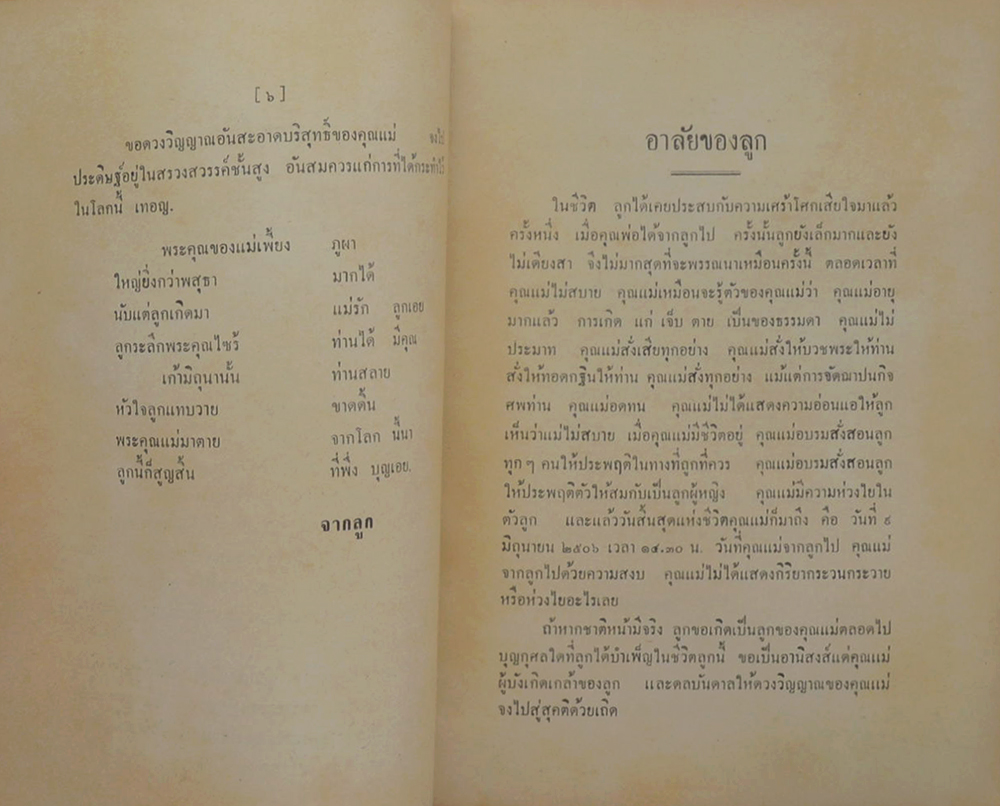 [ ๖ ]
ขอดวงวิญญาณอันสะอาดบริสุทธิ์ของคุณแม่
ประดิษฐ์อยู่ในสรวงสวรรค์ชั้นสูง อันสมควรแก่การที่ได้กระทำไว้
ในโลกนี้ เทอญ.
พระคุณของแม่เพี้ยง ภูผา
ใหญ่ยิ่งกว่าพสุธา มากได้
นับแต่ลูกเกิดมา แม่รัก ลูกเอย
ลูกระลึกพระคุณไซร้ ท่านได้ มีคุณ
เก้ามิถุนานั้น ท่านสลาย
หัวใจลูกแทบวาย ขาดดิ้น
พระคุณแม่มาตาย จากโลก นี้นา
ลูกนี้ก็สูญสิ้น ที่พึ่ง บุญเอย.
จากลูก
อาลัยของลูก
ในชีวิต ลูกได้เคยประสบกับความเศร้าโศกเสียใจมาแล้ว
ครั้งหนึ่ง เมื่อคุณพ่อได้จากลูกไป ครั้งนั้นลูกยังเล็กมากและยัง
ไม่เดียงสา จึงไม่มากสุดที่จะพรรณนาเหมือนครั้งนี้ ตลอดเวลาที่
คุณแม่ไม่สบาย คุณแม่เหมือนจะรู้ตัวของคุณแม่ว่า คุณแม่อายุ
มากแล้ว การเกิด แก่ เจ็บ ตาย เป็นของธรรมดา คุณแม่ไม่
ประมาท คุณแม่สั่งเสียทุกอย่าง คุณแม่สั่งให้บวชพระให้ท่าน
สั่งให้ทอดกฐินให้ท่าน คุณแม่สั่งทุกอย่าง แม้แต่การจัดฌาปนกิจ
ศพท่าน คุณแม่อดทน คุณแม่ไม่ได้แสดงความอ่อนแอให้ลูก
เห็นว่าแม่ไม่สบาย เมื่อคุณแม่มีชีวิตอยู่ คุณแม่อบรมสั่งสอนลูก
ทุก ๆ คนให้ประพฤติในทางที่ถูกที่ควร คุณแม่อบรมสั่งสอนลูก
ให้ประพฤติตัวให้สมกับเป็นลูกผู้หญิง คุณแม่มีความห่วงใยใน
ตัวลูก และแล้ววันสิ้นสุดแห่งชีวิตคุณแม่ก็มาถึง คือ วันที่ ๙
มิถุนายน ๒๕๐๖ เวลา ๑๔.๓๐ น. วันที่คุณแม่จากลูกไป คุณแม่
จากลูกไปด้วยความสงบ คุณแม่ไม่ได้แสดงกิริยากระวนกระวาย
หรือห่วงใยอะไรเลย
ถ้าหากชาติหน้ามีจริง ลูกขอเกิดเป็นลูกของคุณแม่ตลอดไป
บุญกุศลใดที่ลูกได้บำเพ็ญในชีวิตลูกนี้ ขอเป็นอานิสงส์แด่คุณแม่
ผู้บังเกิดเกล้าของลูก และดลบันดาลให้ดวงวิญญาณของคุณแม่
จงไปสู่สุคติด้วยเถิด